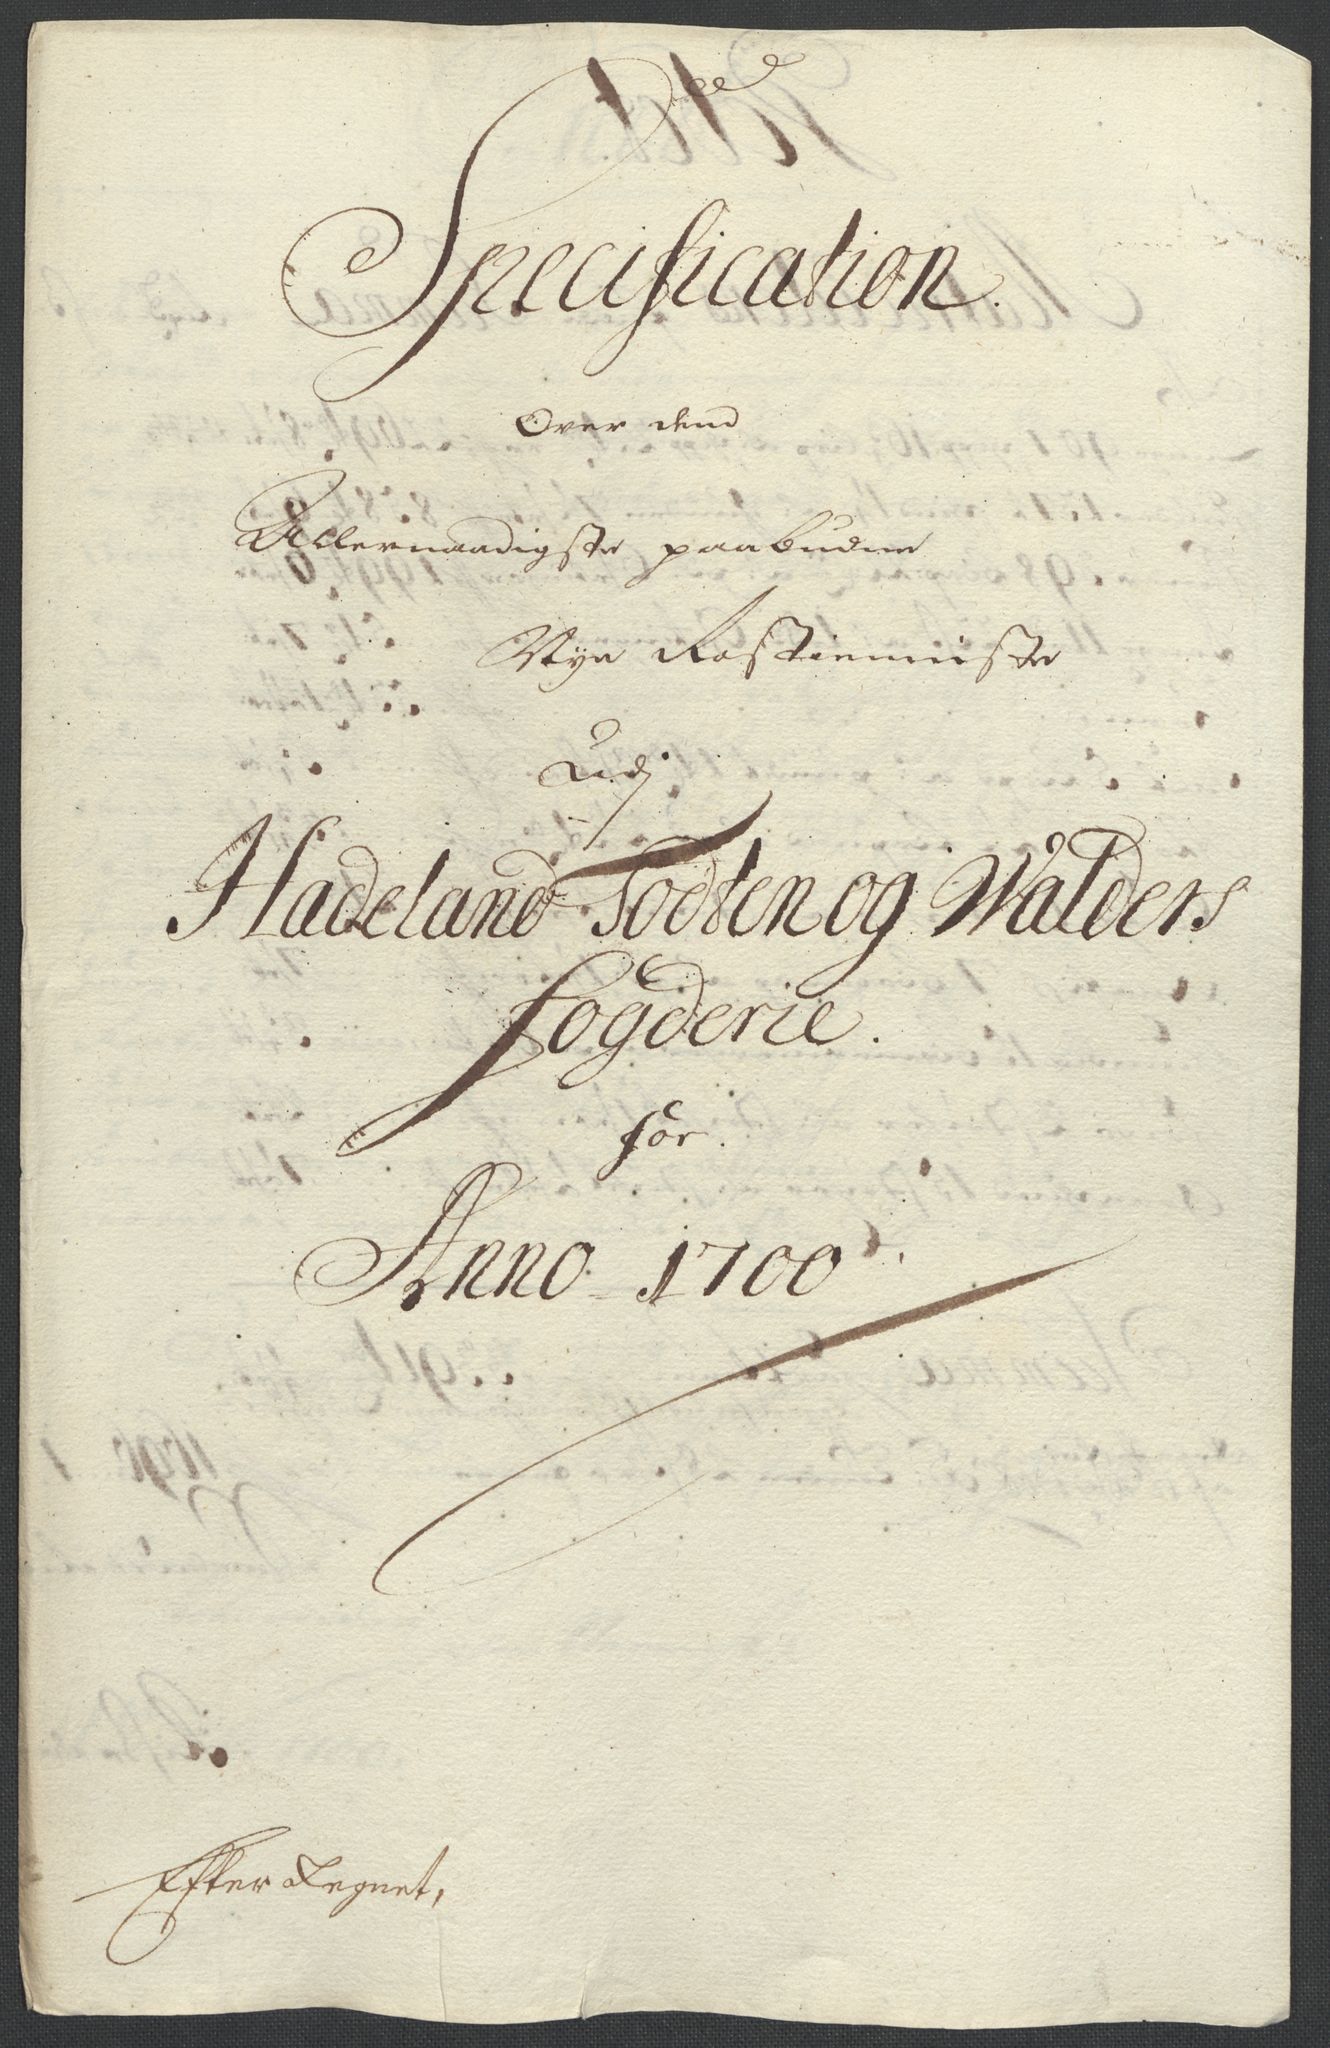 Specification.
Over dend
Allernaadigste paabudne
Nye Rostieniste
Udj
Hadeland Todten og Walders
Fogderie.
for.
Anno 1700
Efter Regnet,